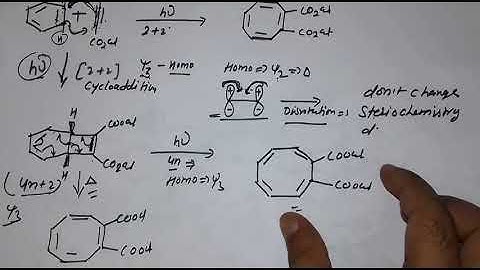 hν
CO₂et
+
H
CO₂et
2+2
CO₂et
hν [2+2] Ψ₃ - Homo
Cycloaddition
Homo⇒Ψ₂⇒Δ
+ +
⊖ ⊖
Disrotation⇒
don't change
Steriochemistry
d.
H
COOet
CO₂et
H
hν
4n ⇒
Homo⇒Ψ₃
COOet
COOet
(4n+2) Δ
Ψ₃
COOH
COOet